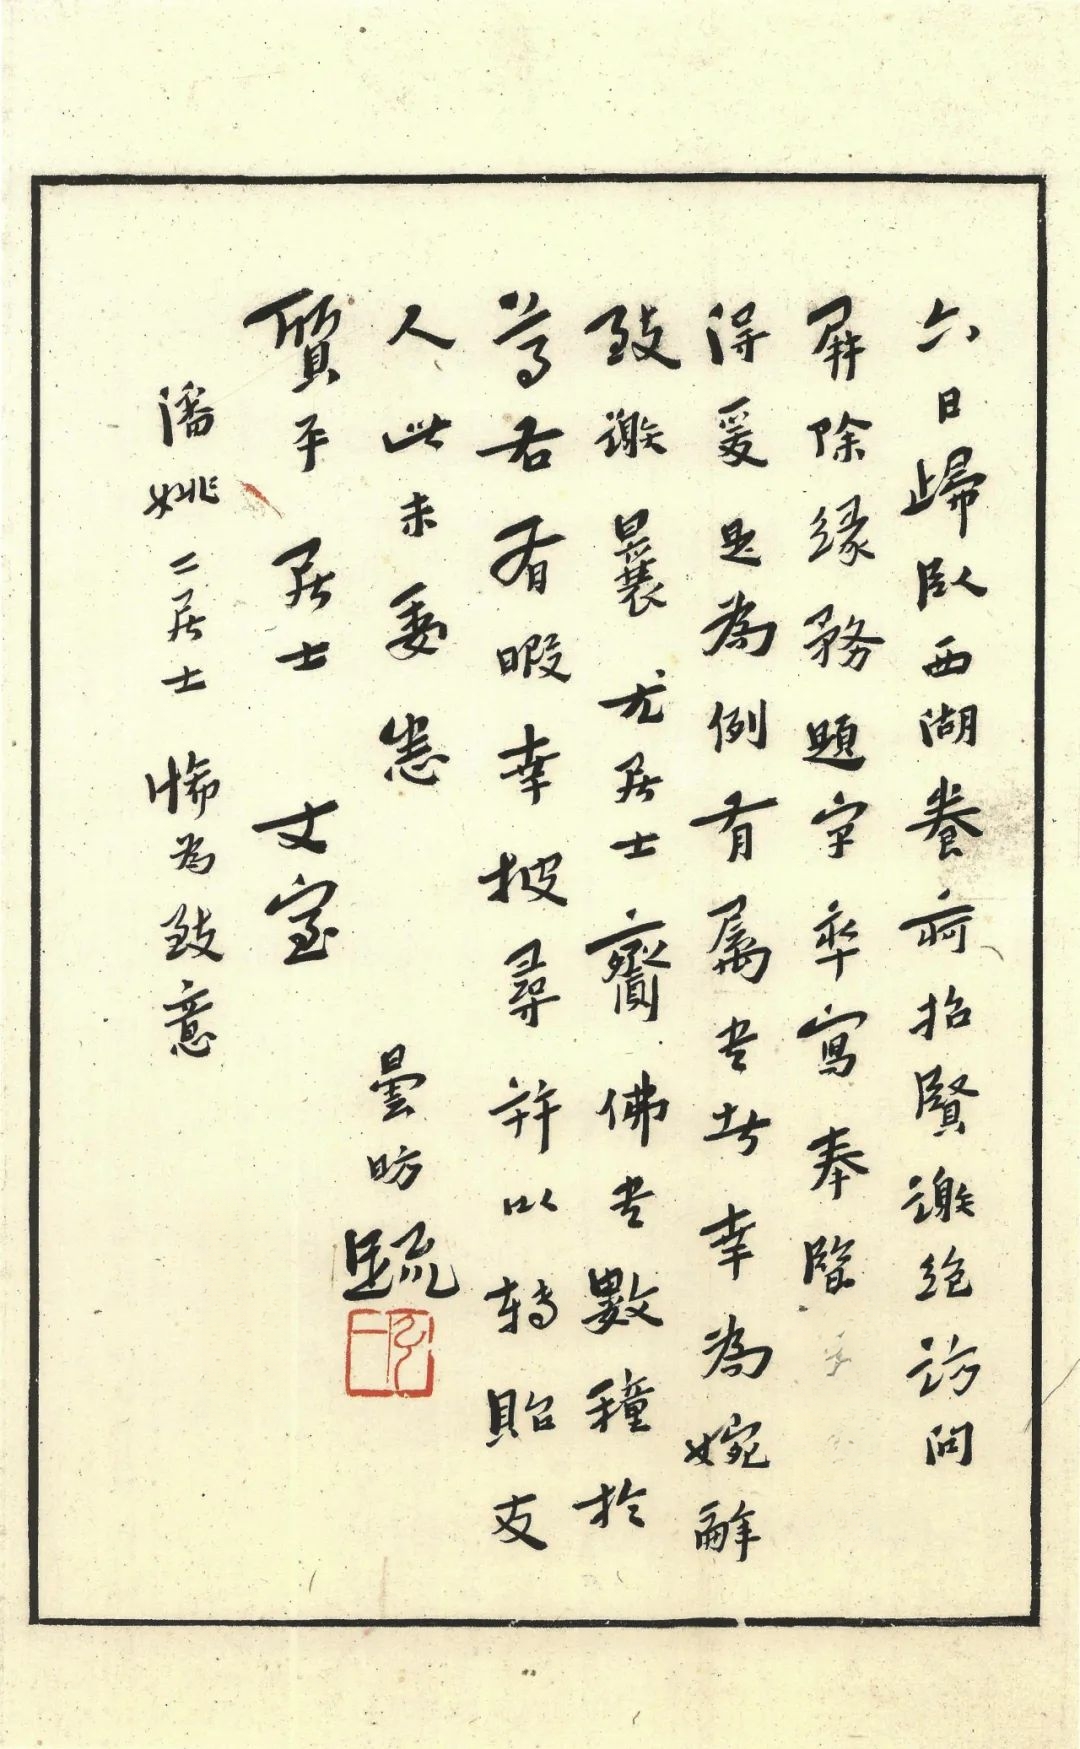 六日歸臥西湖養疴招賢謝絕訪問
屏除緣務題字率寫奉醫
得爰是為例有屬書者幸為婉辭
致謝曩尤居士齎佛書數種於
尊右有暇幸披尋并以轉貽友
人此未委悉　曇昉疏
質平居士　丈室
潘姚二居士　悕為致意